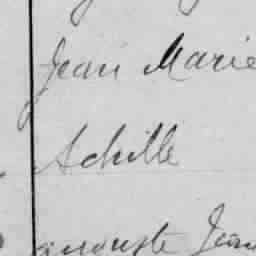 Jean Marie
Achille
auguste Jean